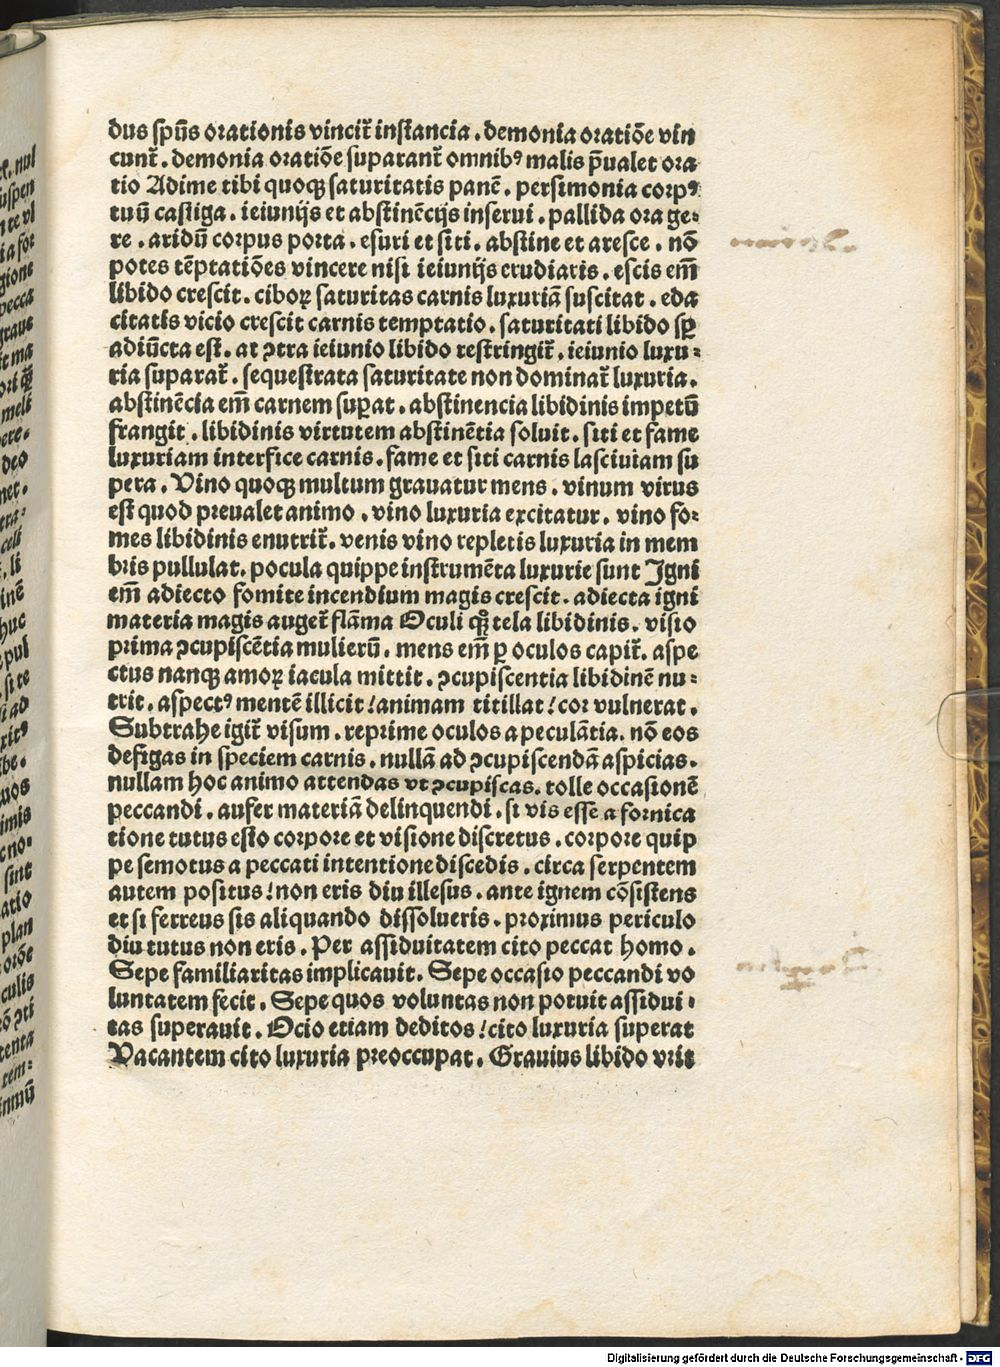 dus sp̄us orationis vincit᷑ instancia . demonia oratiōe vin
cunt᷑ . demonia oratiōe suparant᷑ omnibꝰ malis p̄ualet ora
tio Adime tibi quoqꝫ saturitatis panē . persimonia corpꝰ
tuū castiga . ieiunijs et abstinēcijs inserui . pallida ora ge⸗
re . aridū corpus porta . esuri et siti . abstine et aresce . nō
potes tēptatiōes vincere nisi ieiunijs erudiaris . escis em̄
libido crescit . ciboꝝ saturitas carnis luxuriā suscitat . eda
citatis vicio crescit carnis temptatio . saturitati libido sꝑ
adiūcta est . at ꝯtra ieiunio libido restringit᷑ . ieiunio luxu⸗
ria suparat᷑ . sequestrata saturitate non dominat᷑ luxuria .
abstinēcia em̄ carnem suꝑat . abstinencia libidinis impetū
frangit . libidinis virtutem abstinētia soluit . siti et fame
luxuriam interfice carnis . fame et siti carnis lasciuiam su
pera . Vino quoqꝫ multum grauatur mens . vinum virus
est quod preualet animo . vino luxuria excitatur . vino fo⸗
mes libidinis enutrit᷑ . venis vino repletis luxuria in mem
bris pullulat . pocula quippe instrumēta luxurie sunt Igni
em̄ adiecto fomite incendium magis crescit . adiecta igni
materia magis auget᷑ flāma Oculi qꝫ tela libidinis . visio
prima ꝯcupiscētia mulierū . mens em̄ ꝑ oculos capit᷑ . aspe
ctus nanqꝫ amoꝝ iacula mittit . ꝯcupiscentia libidinē nu⸗
trit . aspectꝰ mentē illicit / animam titillat / cor vulnerat .
Subtrahe igit᷑ visum . reprime oculos a peculātia . nō eos
defigas in speciem carnis . nullā ad ꝯcupiscendā aspicias .
nullam hoc animo attendas vt ꝯcupiscas . tolle occasionē
peccandi . aufer materiā delinquendi . si vis esse a fornica
tione tutus esto corpore et visione discretus . corpore quip
pe semotus a peccati intentione discedis . circa serpentem
autem positus / non eris diu illesus . ante ignem cōsistens
et si ferreus sis aliquando dissolueris . proximus periculo
diu tutus non eris . Per assiduitatem cito peccat homo .
Sepe familiaritas implicauit . Sepe occasio peccandi vo
luntatem fecit . Sepe quos voluntas non potuit assidui⸗
tas superauit . Ocio etiam deditos / cito luxuria superat
Vacantem cito luxuria preoccupat . Grauius libido vrit
Digitalisierung gefördert durch die Deutsche Forschungsgemeinschaft - DFG